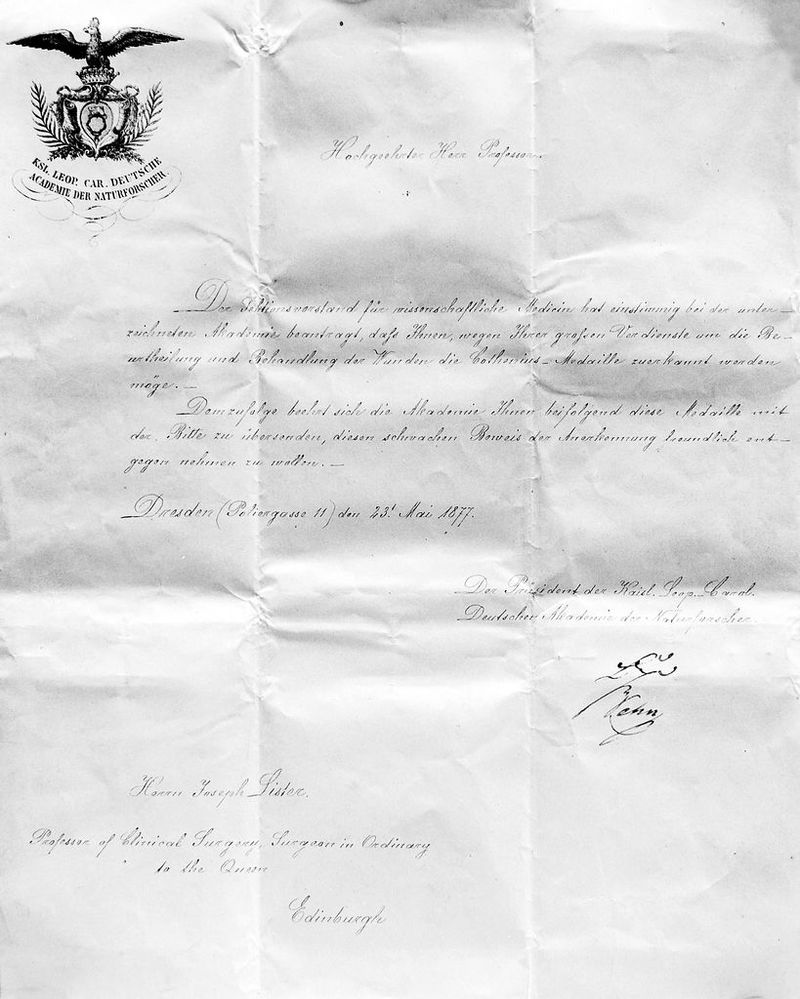 KSL. LEOP. CAR. DEUTSCHE
ACADEMIE DER NATURFORSCHER
Hochgeehrter Herr Professor.
Der Sektionsvorstand für wissenschaftliche Medicin hat einstimmig bei der unter-
zeichneten Akademie beantragt, dafs Ihnen, wegen Ihrer grofsen Verdienste um die Be-
urtheilung und Behandlung der Wunden die Cothenius-Medaille zuerkannt werden
möge.—
Demzufolge beehrt sich die Akademie Ihnen beifolgend diese Medaille mit
der Bitte zu übersenden, diesen schwachen Beweis der Anerkennung freundlich ent-
gegen nehmen zu wollen.—
Dresden (Poliergasse 11) den 23t Mai 1877.
Der Präsident der Kaisl. Leop.-Carol.
Deutschen Akademie der Naturforscher.
Behn
Herrn Joseph Lister.
Professor of Clinical Surgery, Surgeon in Ordinary
to the Queen
Edinburgh